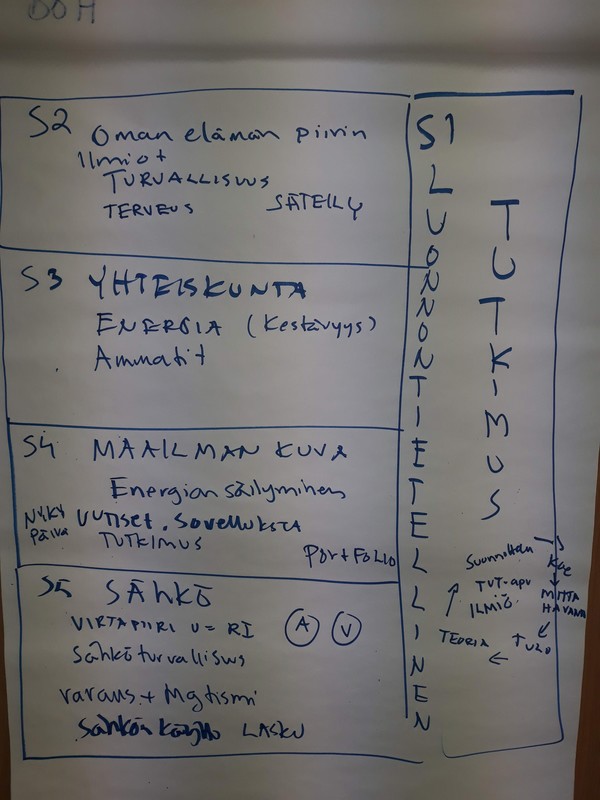 S2 Oman elämän piirin
Ilmiöt
TURVALLISUUS
TERVEUS SÄTEILY
S3 YHTEISKUNTA
ENERGIA (kestävyys)
Ammatit
S4 MAAILMAN KUVA
Energian säilyminen
NYKY
päivä
UUTISET, Sovelluksia
TUTKIMUS
PORTFOLIO
S5 SÄHKÖ
VIRTAPIIRI U = RI A V
Sähköturvallisuus
varaus + Mgtismi
Sähkön käyttö LASKU
S1
LUONNONTIETEELLINEN
TUTKIMUS
Suunnittelu → Koe
TUT-apu
ILMIÖ
MITTA
HAVANN
TEORIA
TULO